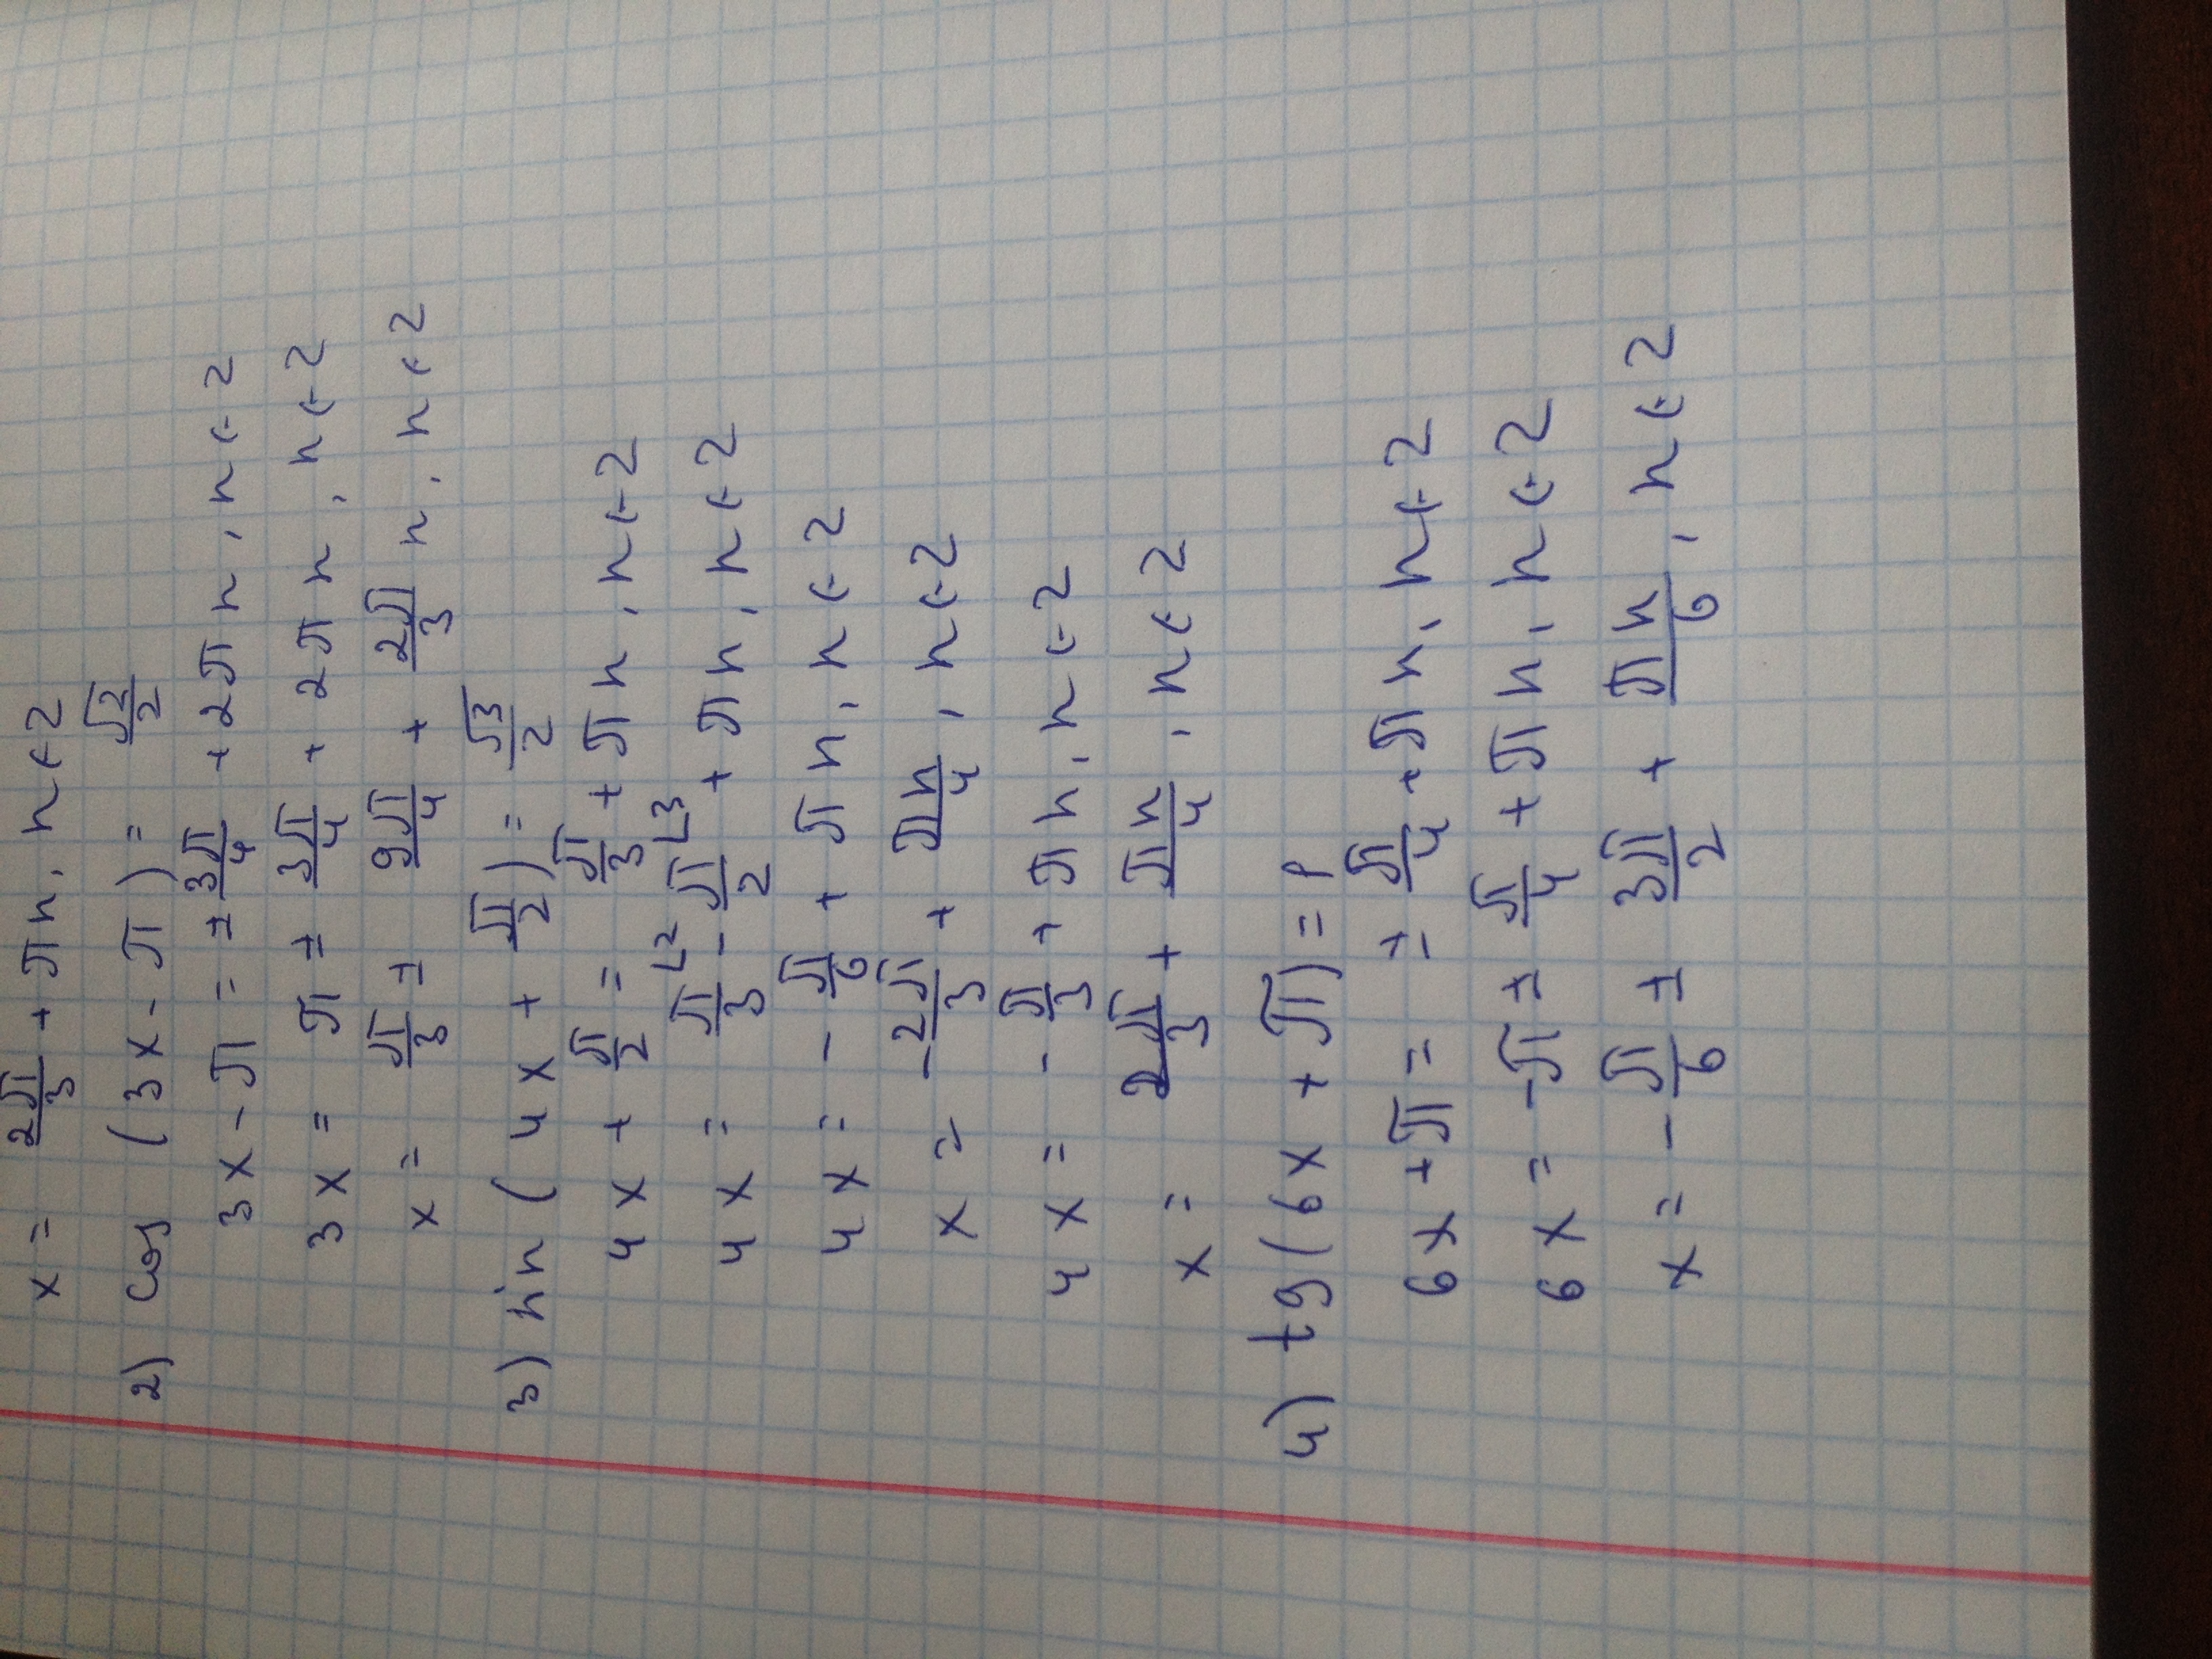 x = 2π/3 + πn, n∈Z
2) cos (3x - π) = √2/2
3x - π = ± 3π/4 + 2πn, n∈Z
3x = π ± 3π/4 + 2πn, n∈Z
x = π/3 ± 9π/4 + 2π/3 n, n∈Z
3) sin (4x + π/2) = √3/2
4x + π/2 = π/3 + πn, n∈Z
4x = π/3 ∟2 - π/2 ∟3 + πn, n∈Z
4x = - π/6 + πn, n∈Z
x = - 2π/3 + πn/4, n∈Z
4x = - π/3 + πn, n∈Z
x = 2π/3 + πn/4, n∈Z
4) tg (6x + π) = 1
6x + π = ± π/4 + πn, n∈Z
6x = -π ± π/4 + πn, n∈Z
x = - π/6 ± 3π/2 + πn/6, n∈Z